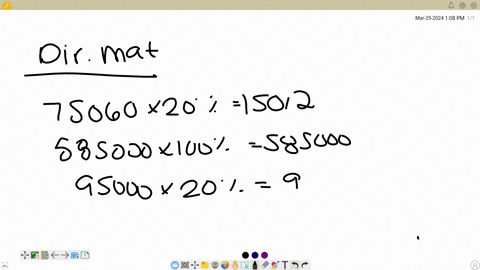 Mar-25-2024 1:08 PM 1/1
Dir. mat
75060 x 20 % = 15012
585000 x 100% = 585000
95000 x 20 % = 9